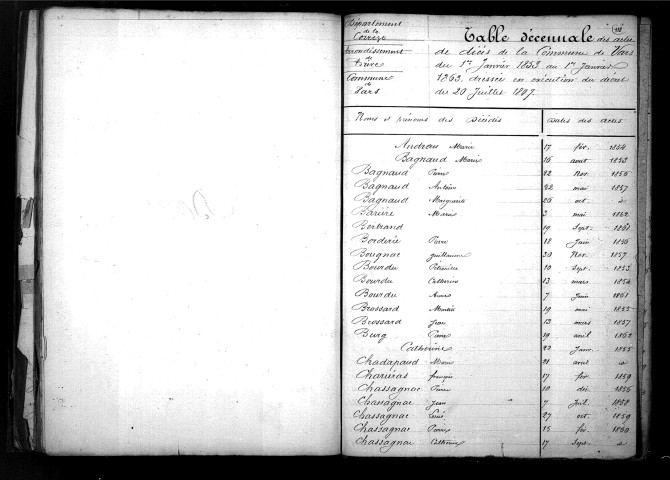 Département
de la
Corrèze
Arrondissement
de
Brive
Commune
de
Vars
Table décennale des actes
de décès de la Commune de Vars
du 1er Janvier 1853 au 1er Janvier
1863, dressée en exécution du décret
des 20 Juillet 1807.
Noms et prénoms des Décédés Dates des actes
Andrau Marie 17 fév. 1854
Bagnaud Marie 16 aout 1853
Bagnaud Pierre 22 Nov. 1856
Bagnaud Antoine 22 mai 1857
Bagnaud Marguerite 26 oct. d
Barière Marie 3 mai 1862
Bertrand 19 Sept. 1861
Borderie Pierre 18 Juin 1856
Bougnac guillaume 30 Nov. 1857
Bourdu 10 Sept. 1853
Bourdu Catherine 13 mars 1854
Bourdu 7 Juin 1861
Brossard 19 mai 1855
Brossard Jean 13 mars 1857
Burg Pierre 19 avril 1862
Catherine 22 Janv. 1855
Chadapaud Marie 21 avril d
Chariéras françois 17 fév. 1859
Chassagnac Pierre 10 déc. 1856
Chassagnac Jean 7 Juil. 1858
Chassagnac Louis 27 oct. 1859
Chassagnac Pierre 15 fév. 1860
Chassagnac Catherine 17 Sept. d